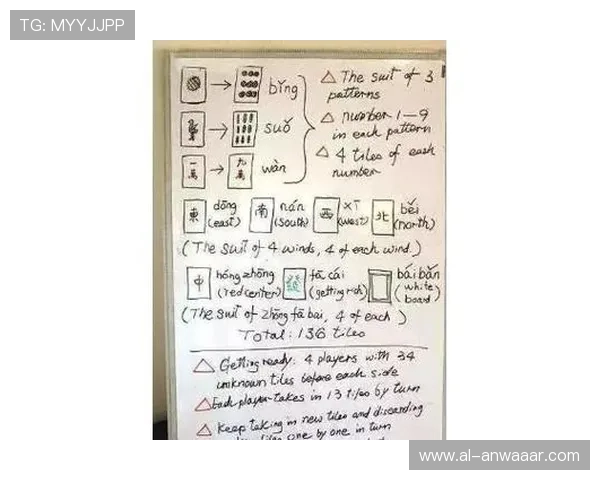 TG: MYYJJPP
bǐng
suǒ
一萬 九萬 wàn
△ The suit of 3
patterns
△ number 1—9
in each pattern
△ 4 tiles of each
number
東 dōng (east) 南 nán (south) 西 xī (west) 北 běi (north)
(The suit of 4 winds, 4 of each wind.)
中 hóng zhōng (red center) 發 fā cái (getting rich) bái bǎn (white board)
(The suit of zhōng fā bái, 4 of each)
Total: 136 tiles
△ Getting ready: 4 players with 34
unknown tiles before each side
△ Each player takes in 13 tiles by turn
△ Keep taking in new tiles and discarding
tiles one by one in turn
www.al-anwaaar.com